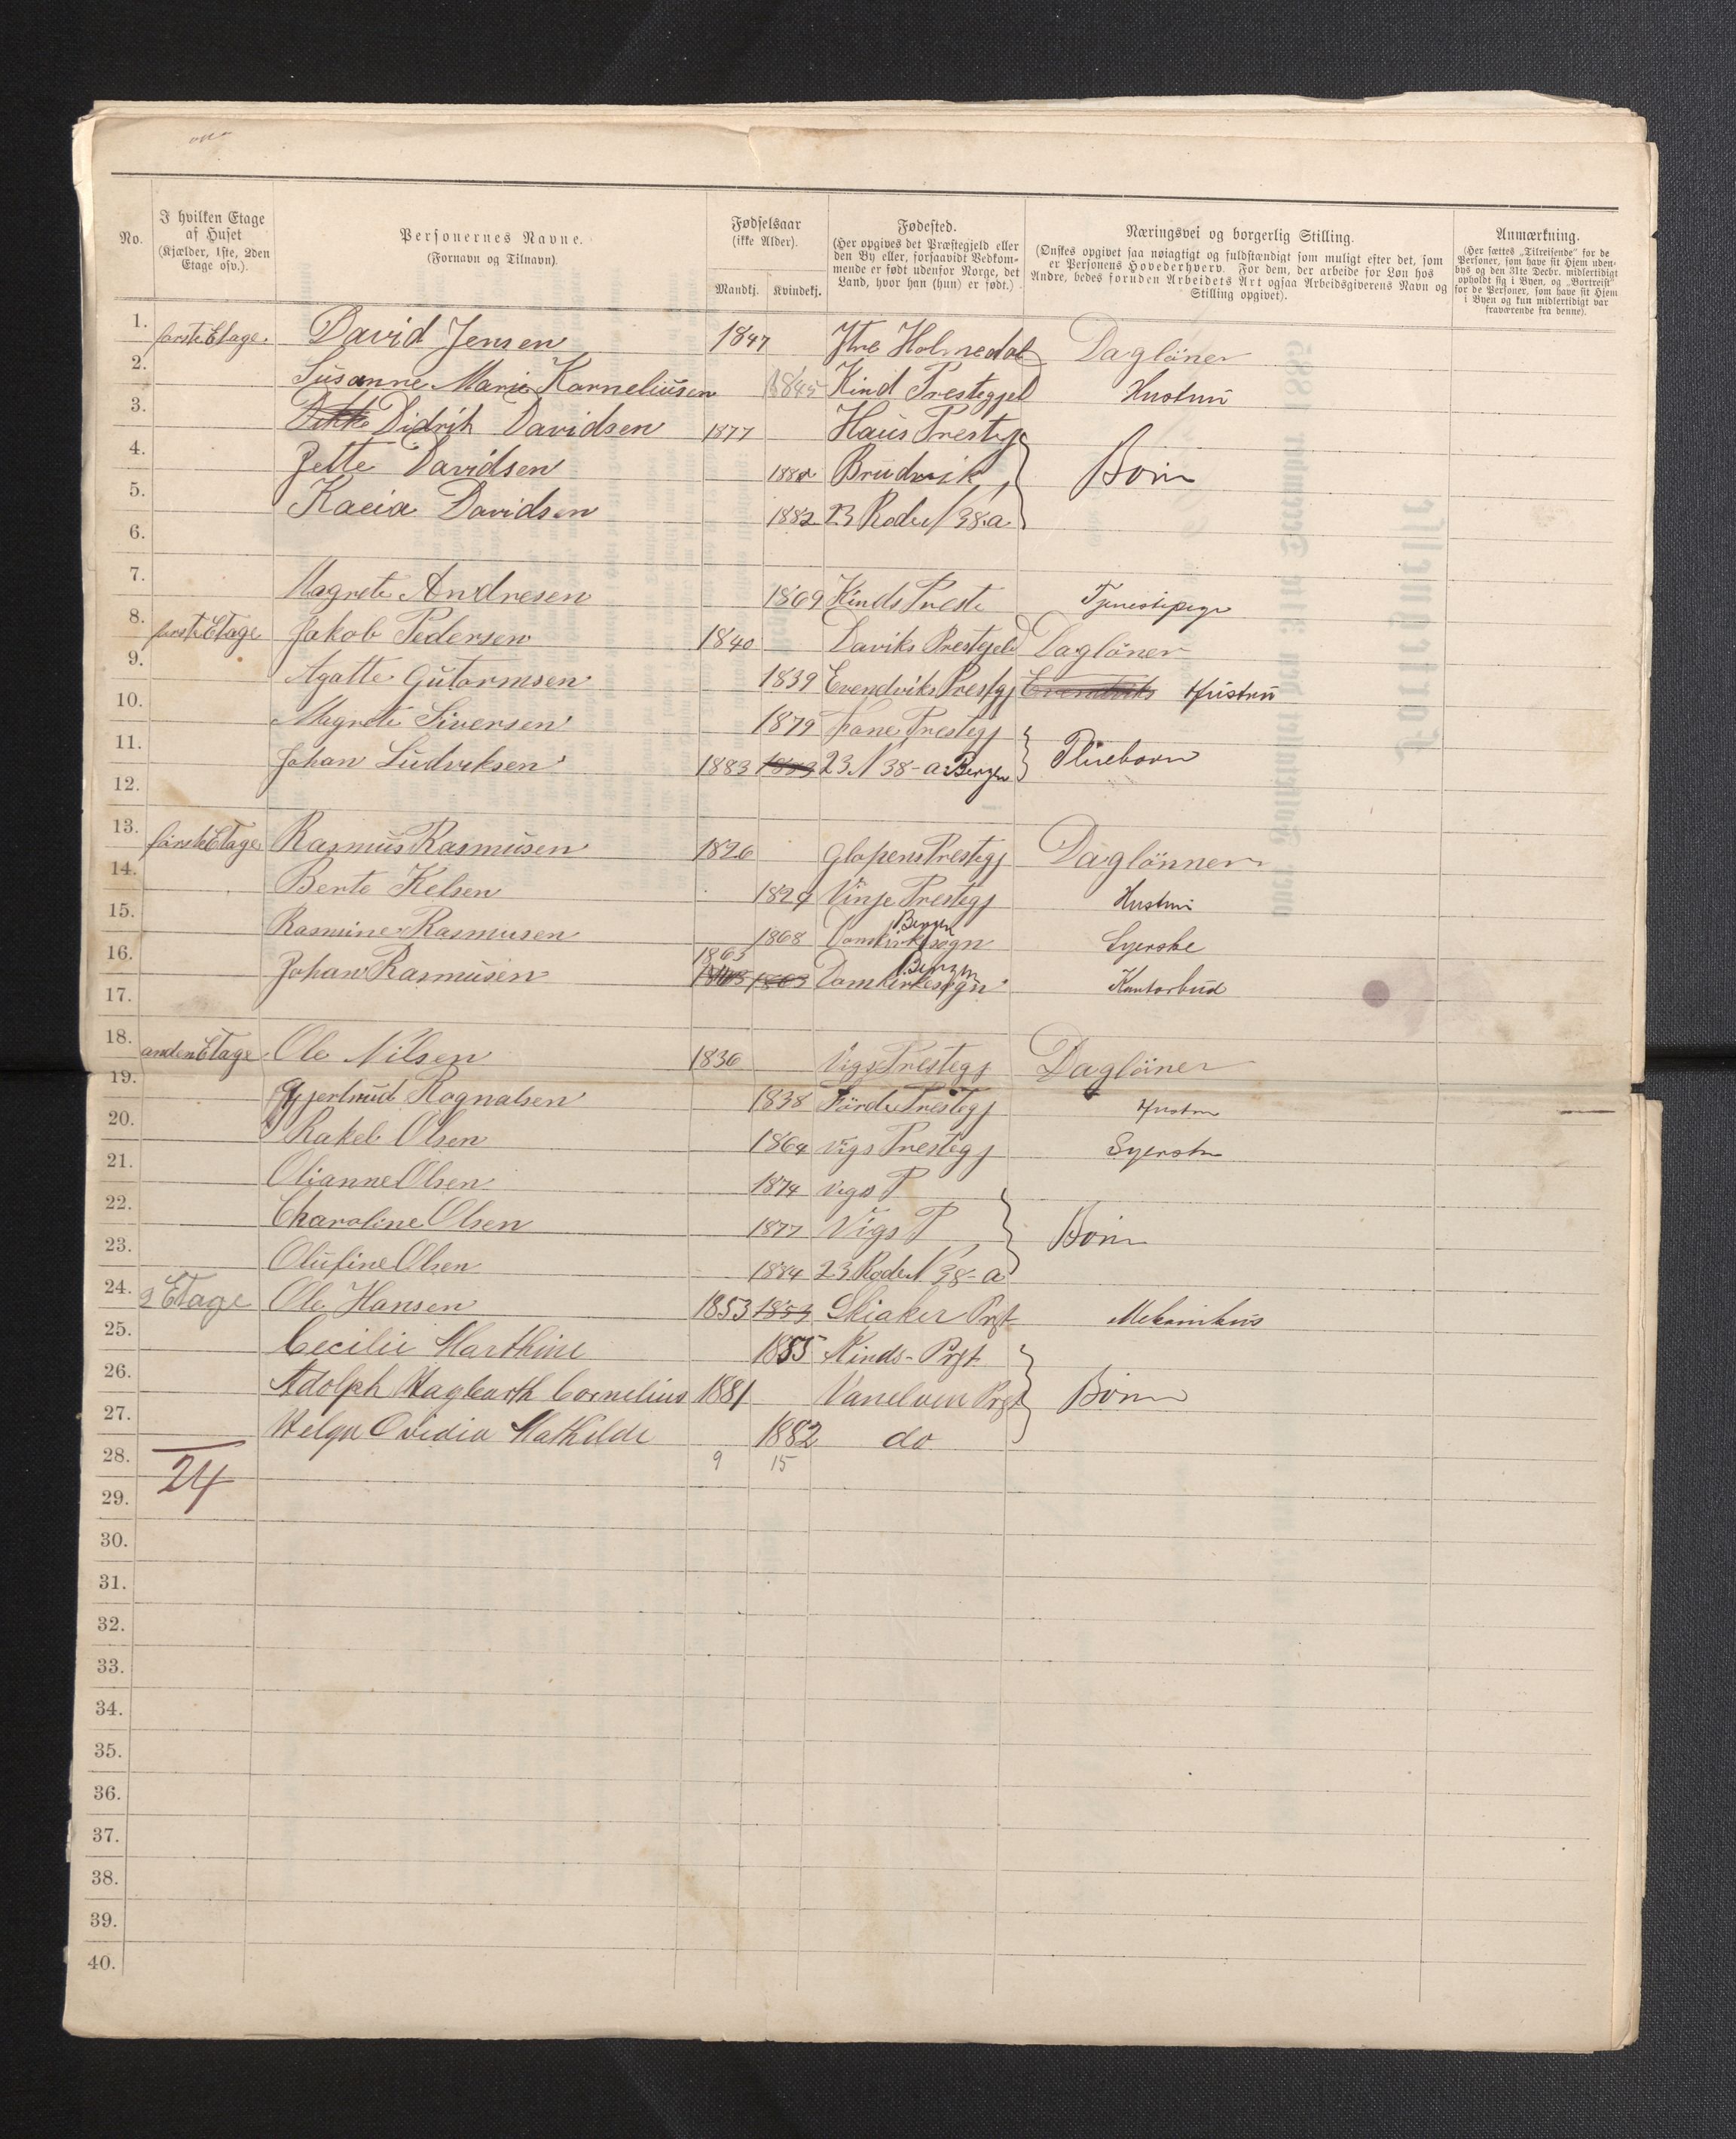 No.
I hvilken Etage af Huset (Kjælder, 1ste, 2den Etage osv.).
Personernes Navne. (Fornavn og Tilnavn).
Fødselsaar (ikke Alder).
Mandkj. Kvindekj.
Fødested. (Her opgives det Præstegjeld eller den By eller, forsaavidt Vedkommende er født udenfor Norge, det Land, hvor han (hun) er født.)
Næringsvei og borgerlig Stilling. (Ønskes opgivet saa nøiagtigt og fuldstændigt som muligt efter det, som er Personens Hovederhverv. For dem, der arbeide for Løn hos Andre, bedes foruden Arbeidets Art ogsaa Arbeidsgiverens Navn og Stilling opgivet).
Anmærkning. (Her sættes „Tilreisende" for de Personer, som have sit Hjem udenbys og den 31te Decbr. midlertidigt opholdt sig i Byen, og „Bortreist" for de Personer, som have sit Hjem i Byen og kun midlertidigt var fraværende fra denne).
1. første Etage. David Jensen 1847 Ytre Holmedal Daglöner
2. Susanne Marie Korneliusen 1845 Kind Prestegjel Hustru
3. Didrik Davidsen 1877 Haus Prestegj
4. Jette Davidsen 1880 Brudvik Börn
5. Kacia Davidsen 1882 23 Rode N 38.a
6.
7. Magrete Andresen 1869 Kinds Preste Tjenestepige
8. første Etage Jakob Pedersen 1840 Daviks Prestejeld Daglöner
9. Agatte Gutormsen 1839 Evendviks Prestgj Evendviks Hustru
10. Magrete Siversen 1879 Fane Prestegj
11. Johan Ludviksen 1883 1883 23 N 38-a Bergen Pliebarn
12.
13. första Etage Rasmus Rasmusen 1826 Glopens Prestegj Daglönner
14. Berte Kelsen 1824 Vinje Prestegj Hustru
15. Rasmine Rasmusen 1868 Domkirkesogn Bergen Syerske
16. Johan Rasmusen 1863 1863 Domkirkesogn Bergen Kontorbud
17.
18. anden Etage Ole Nilsen 1836 Vigs Prestegj Daglöner
19. Gjertrud Rognalsen 1838 Förde Prestegj Hustru
20. Rakel Olsen 1864 Vigs Prestegj Syerske
21. Olianne Olsen 1874 Vigs P
22. Charoline Olsen 1877 Vigs P Börn
23. Olufine Olsen 1884 23 Rode N 38-a
24. 2 Etage Ole Hansen 1853 1853 Skiaker Prgt Mekanikus
25. Cecilie Marthine 1885 Kinds-Prgt
26. Adolph Hagbarth Cornelius 1881 Vanelven Prgt Börn
27. Helga Ovidia Mathilde 1882 do
28. 24 9 15
29.
30.
31.
32.
33.
34.
35.
36.
37.
38.
39.
40.